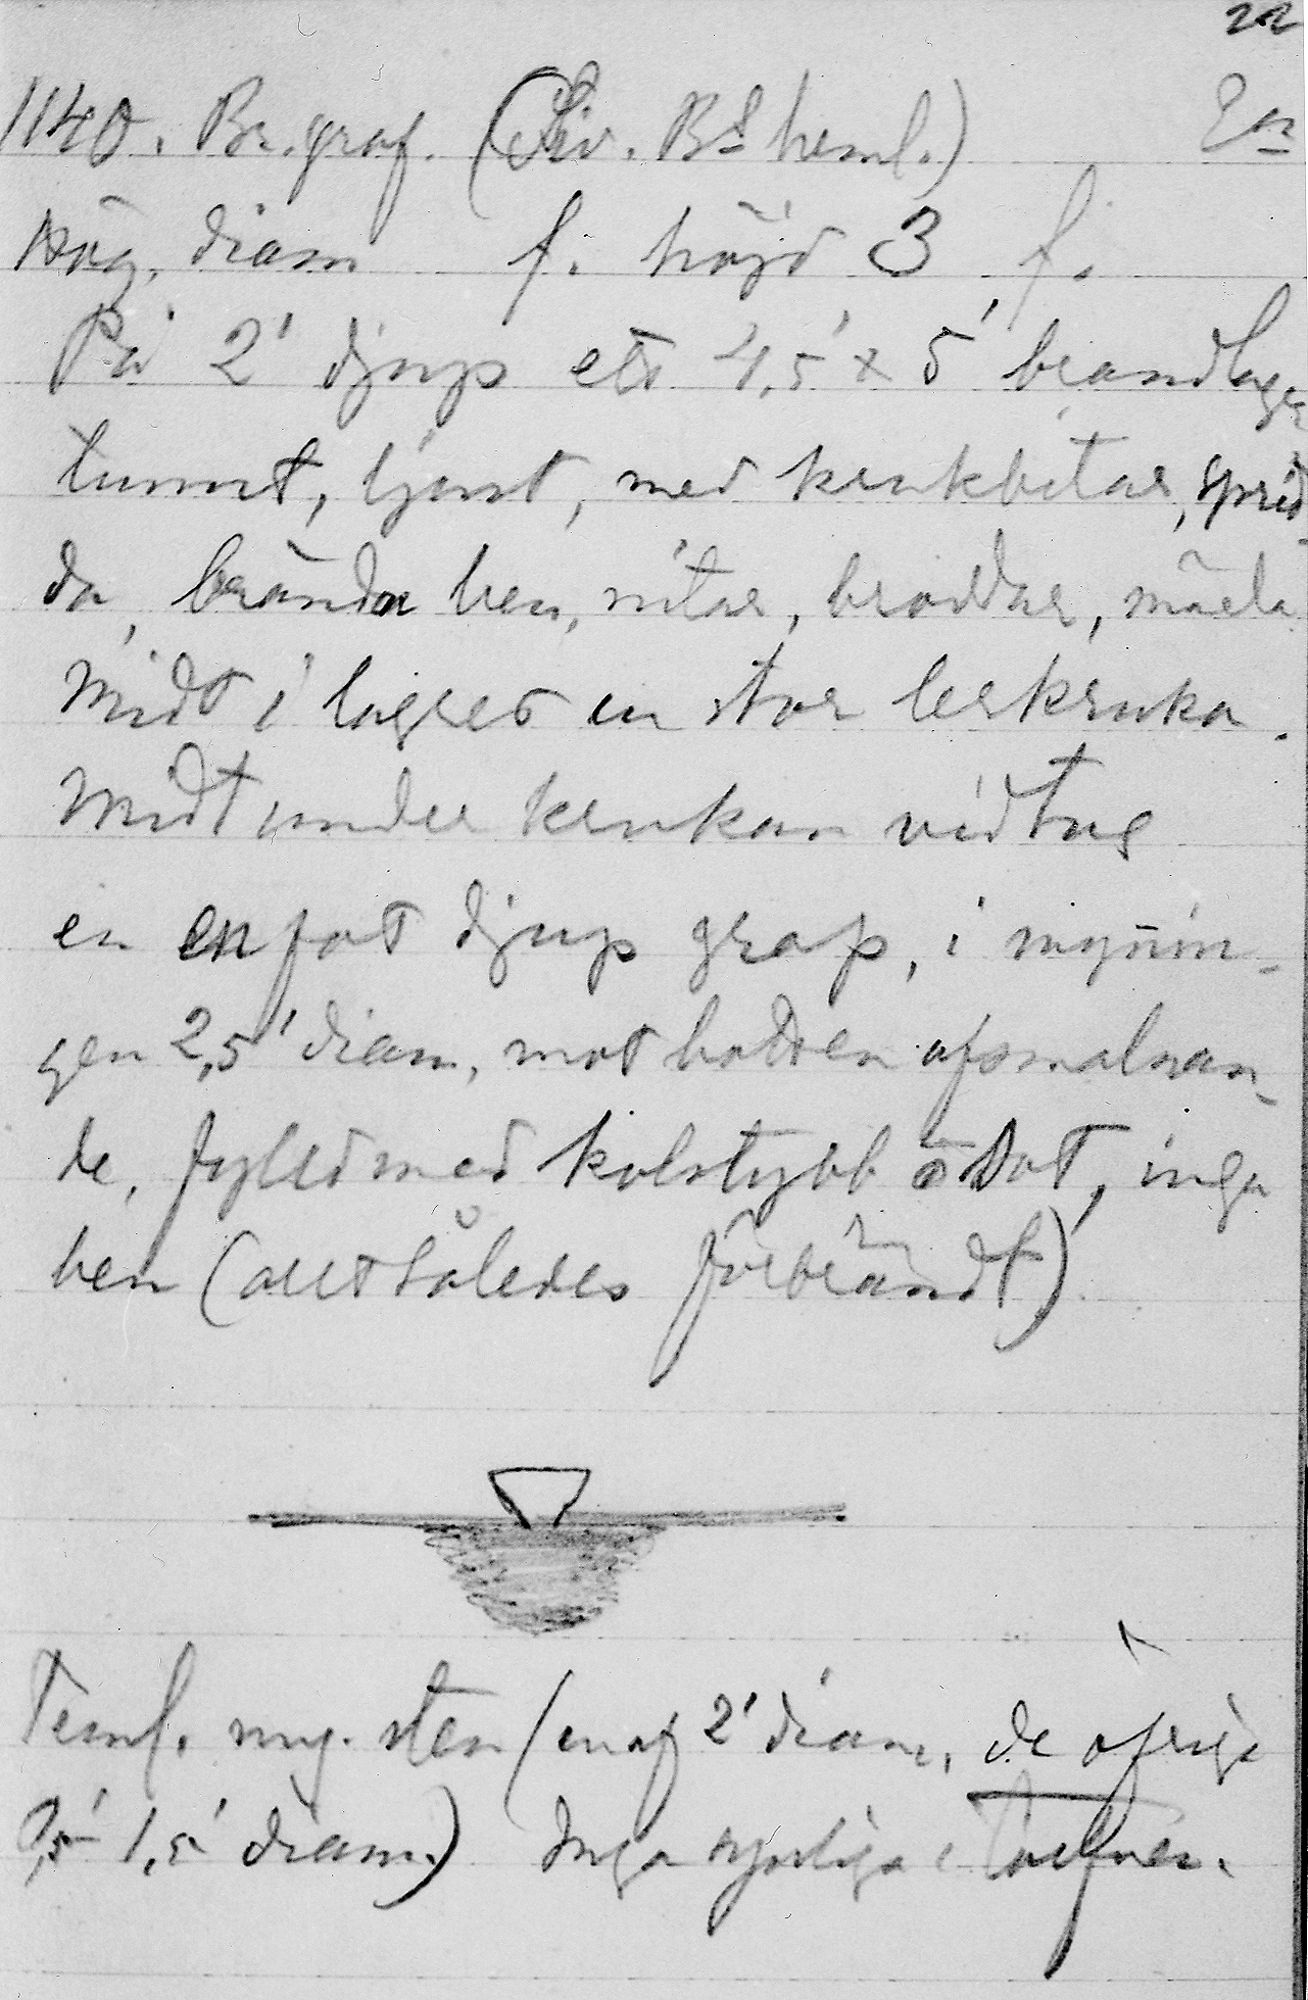 22
1140. Br.graf. (Div. Bs heml.) En
Hög, diam f. höjd 3 f.
På 2' djup ett 4,5' x 5' brandlager
tunnt, ljust, med krukbitar, sprid-
da, brända ben, nitar, broddar, märla
Midt i lagret en stor lerkruka.
Midt under krukan vidtog
en en fot djup grop, i mynnin-
gen 2,5' diam, mot botten afsmalnan-
de, fylld med kolstybb o sot, inga
ben (allt således förbrändt)
Teml. mg. sten (en af 2' diam, de öfriga
0,5'-1,5' diam.) Inga synliga i torfven.